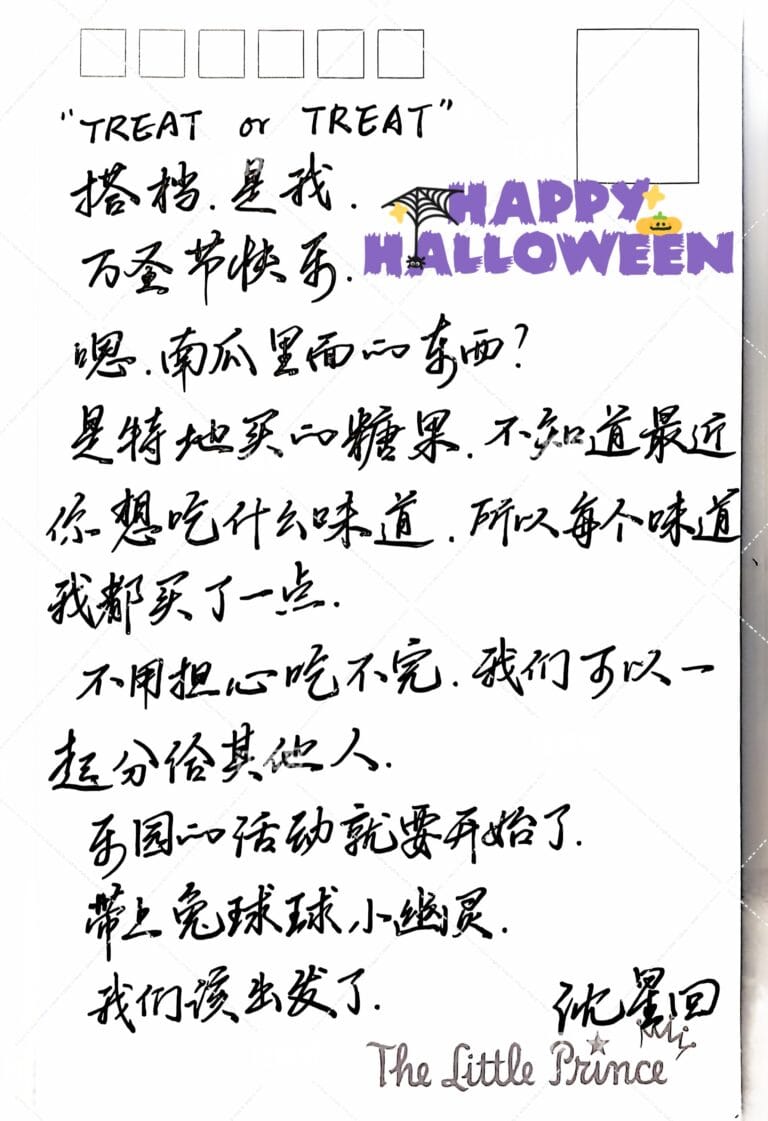 "TREAT or TREAT"
搭档.是我.
HAPPY
HALLOWEEN
万圣节快乐.
嗯.南瓜里面的东西?
是特地买的糖果.不知道最近
你想吃什么味道.所以每个味道
我都买了一点.
不用担心吃不完.我们可以一
起分给其他人.
乐园的活动就要开始了.
带上兔球球小幽灵.
我们该出发了.
沈星回
The Little Prince